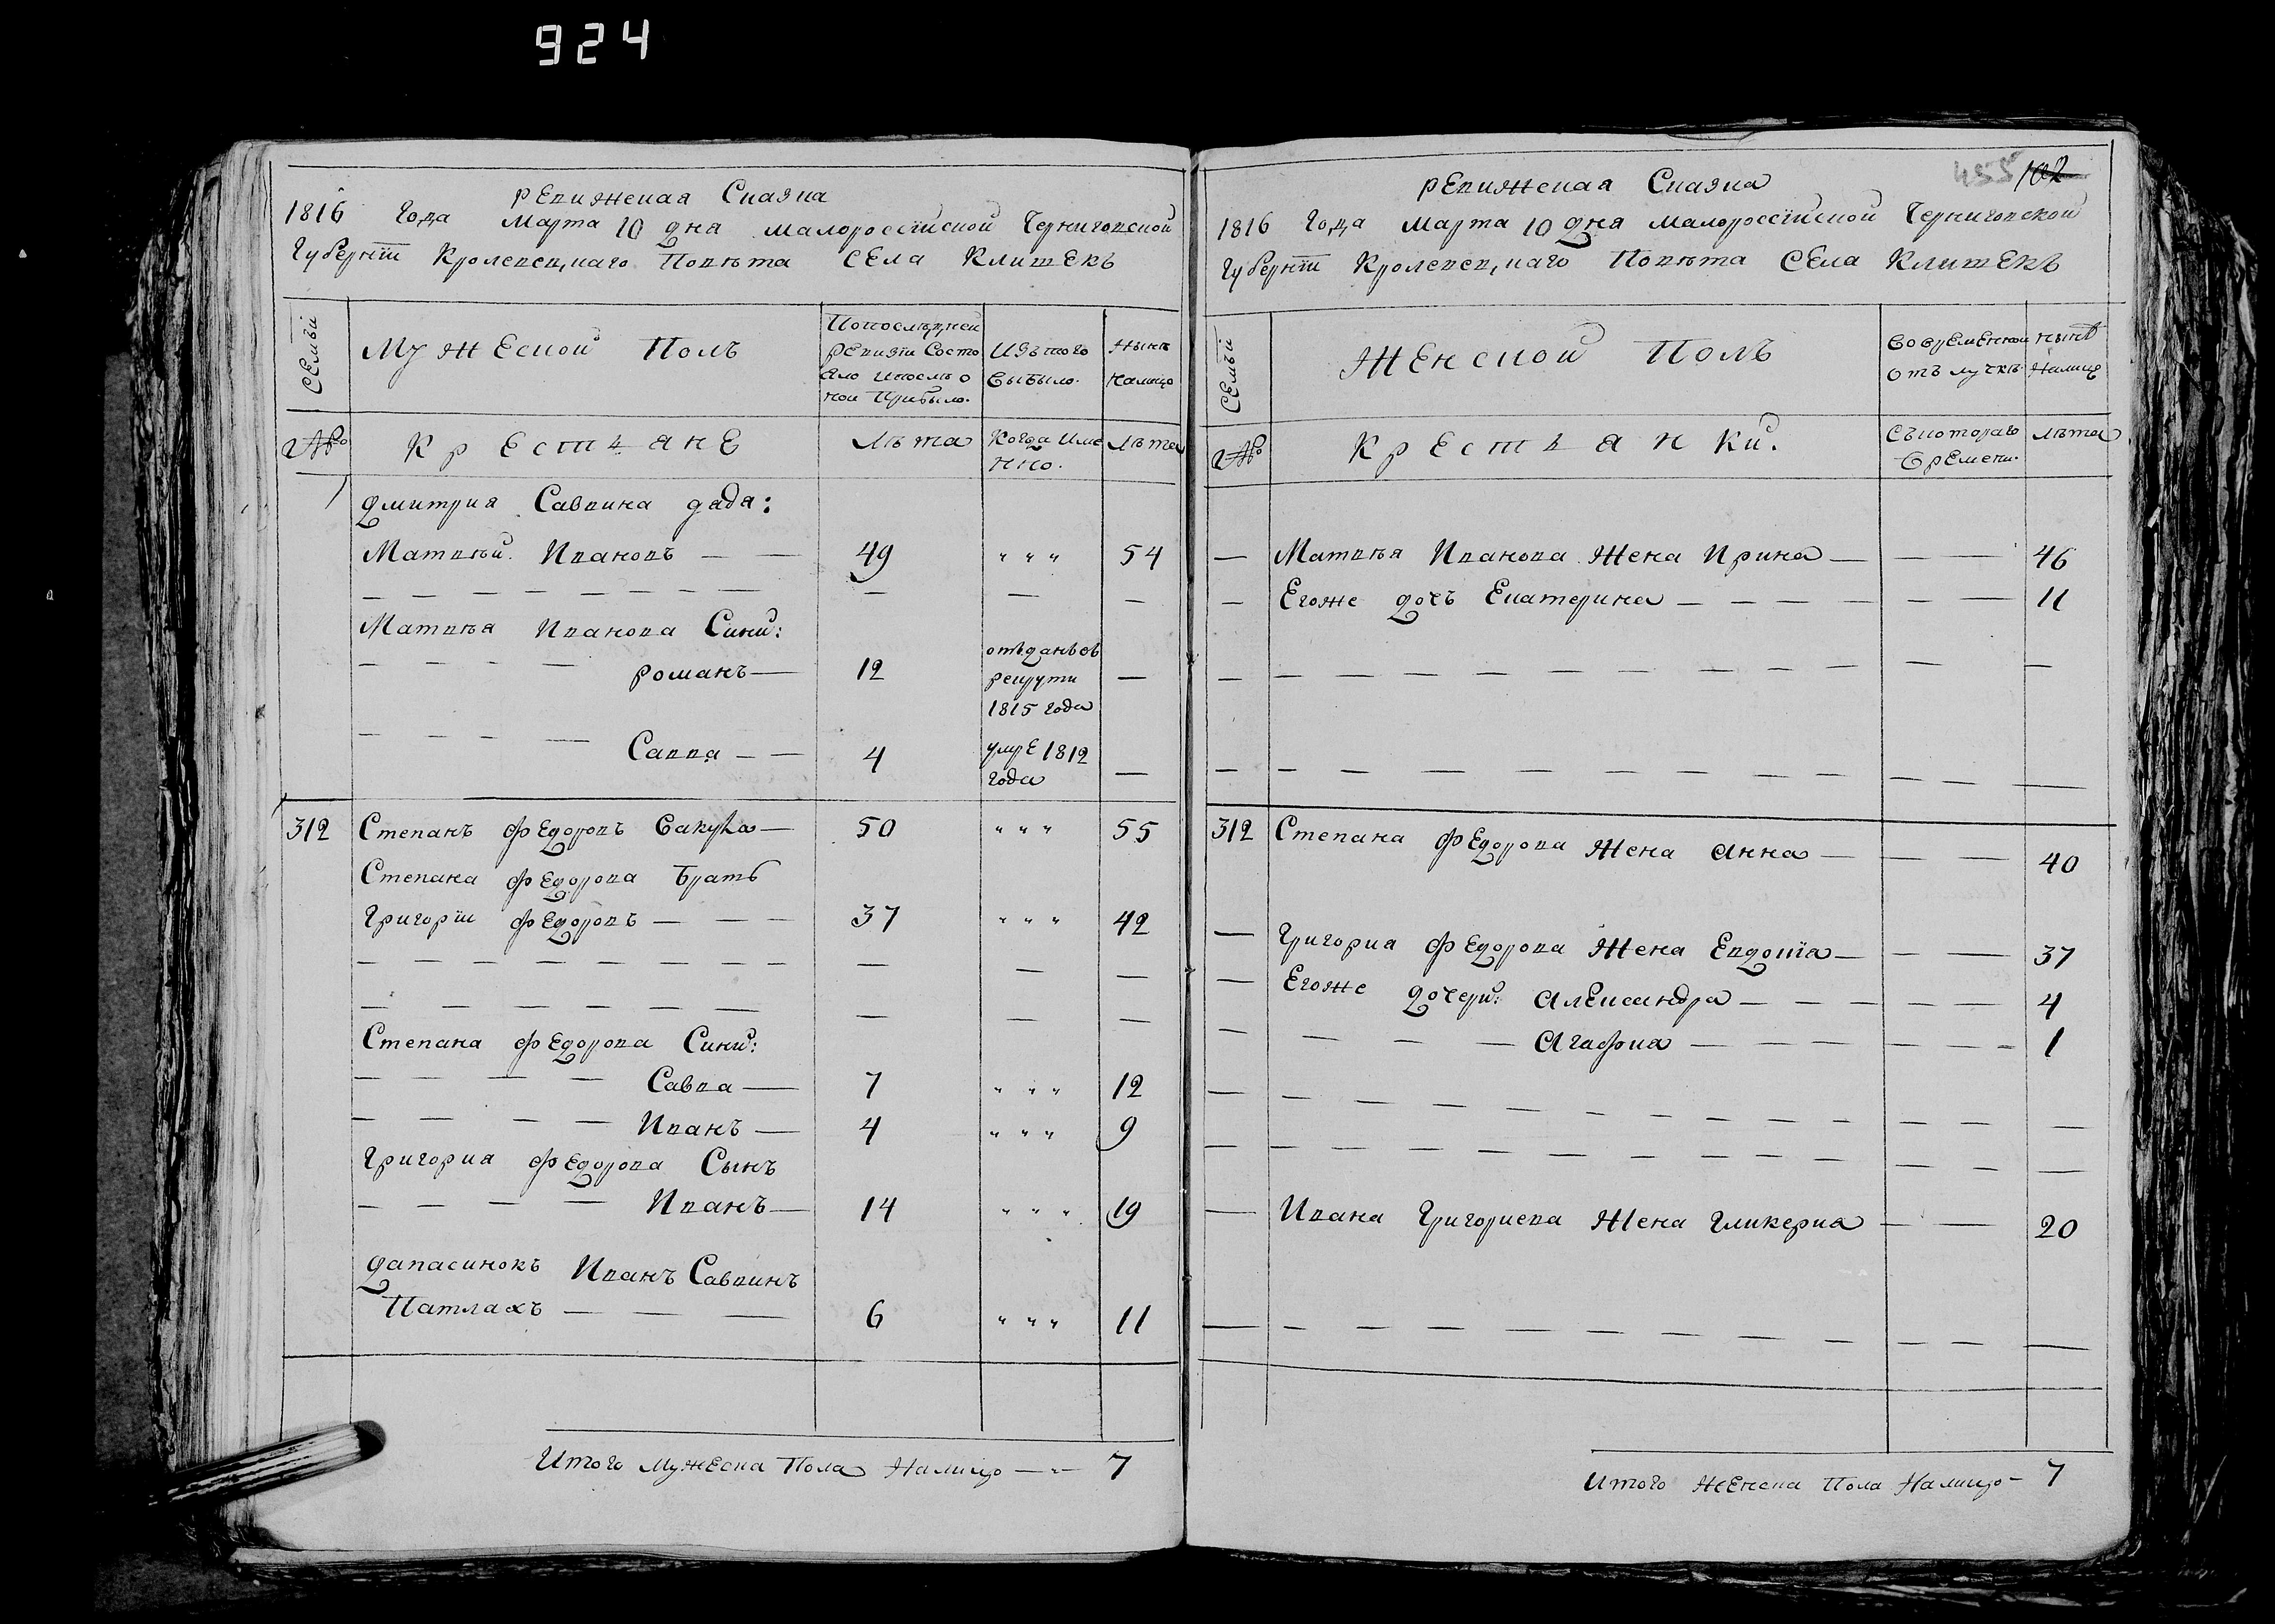 924
Ревижская Сказка
1816 Года Марта 10 дня Малороссїйской Черниговской
Губернїи Кролевецкаго Повѣта СЕла КлишЕкъ
СЕмьи
МужЕской Полъ
Попослѣдней
рЕвизїи Состо
яло ипослѣ о
ной Прибыло.
Изътого
Выбыло.
Нынѣ
налицо
№
КрЕстьянЕ
Лѣта
Когда Име
нно.
Лѣта
Дмитрия Саввина дядя:
Матвѣй Ивановъ — — 49 " " " 54
Матвѣя Иванова Сини:
романъ — 12
отъданъвъ
рекруты —
1815 года
Савва — — 4 умрЕ 1812
года —
312 Степанъ ФЕдоровъ Вакуha — 50 " " " 55
Степана ФЕдорова Братъ
Григорїи ФЕдоровъ — — — 37 " " " 42
Степана ФЕдорова Сини:
Савва — 7 " " " 12
Иванъ — 4 " " " 9
Григория ФЕдорова Сынъ
Иванъ — 14 " " " 19
Иванъ Саввинъ
Патлахъ — — — 6 " " " 11
Итого мужЕска Пола Налицо — 7
455 102
Ревижская Сказка
1816 Года Марта 10 Дня Малороссїйской Черниговской
Губернїи Кролевецкаго Повѣта СЕла КлишЕкъ
СЕмьи
ЖЕнской Полъ
Вовременной
отълучкѣ
нынѣ
Налицѣ
№
КрЕстьянки.
Съкотораго
врЕмени.
лѣта
— Матвѣя Иванова Жена Ирина — — — 46
— Егоже дочь Екатерина — — — — — — 11
312 Степана ФЕдорова Жена Анна — — — 40
— Григория ФЕдорова Жена Евдокїя — — — 37
— Егоже Дочери: АлЕксандра — — — — — 4
— — — — Агафия — — — — — — 1
— Ивана Григориева Жена Гликерия — — 20
Итого ЖЕнска Пола Налицо — 7